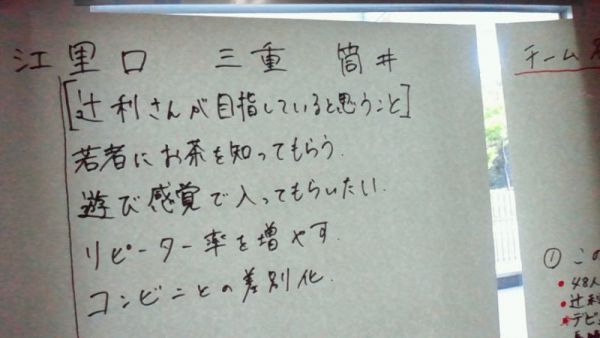 江里口 三重 筒井
[辻利さんが目指していると思うこと]
若者にお茶を知ってもらう.
遊び感覚で入ってもらいたい.
リピーター率を増やす.
コンビニとの差別化.
チーム
① この
• 48人
• 辻利
• デビ